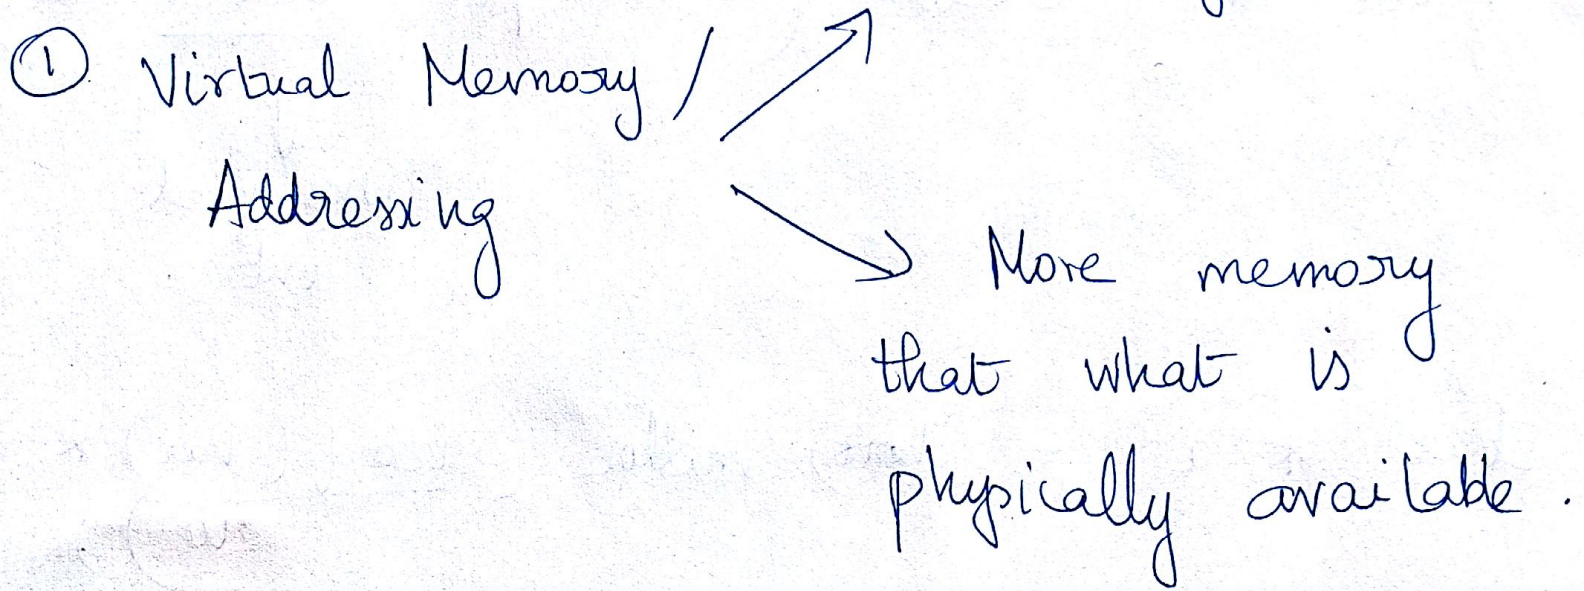 ① Virtual Memory /
Addressing
More memory
that what is
physically available.